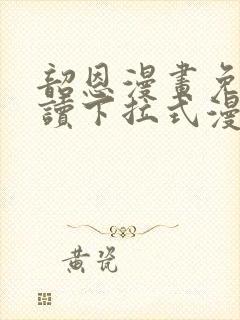 韶恩漫畫免
讀下拉式漫
黃瓷